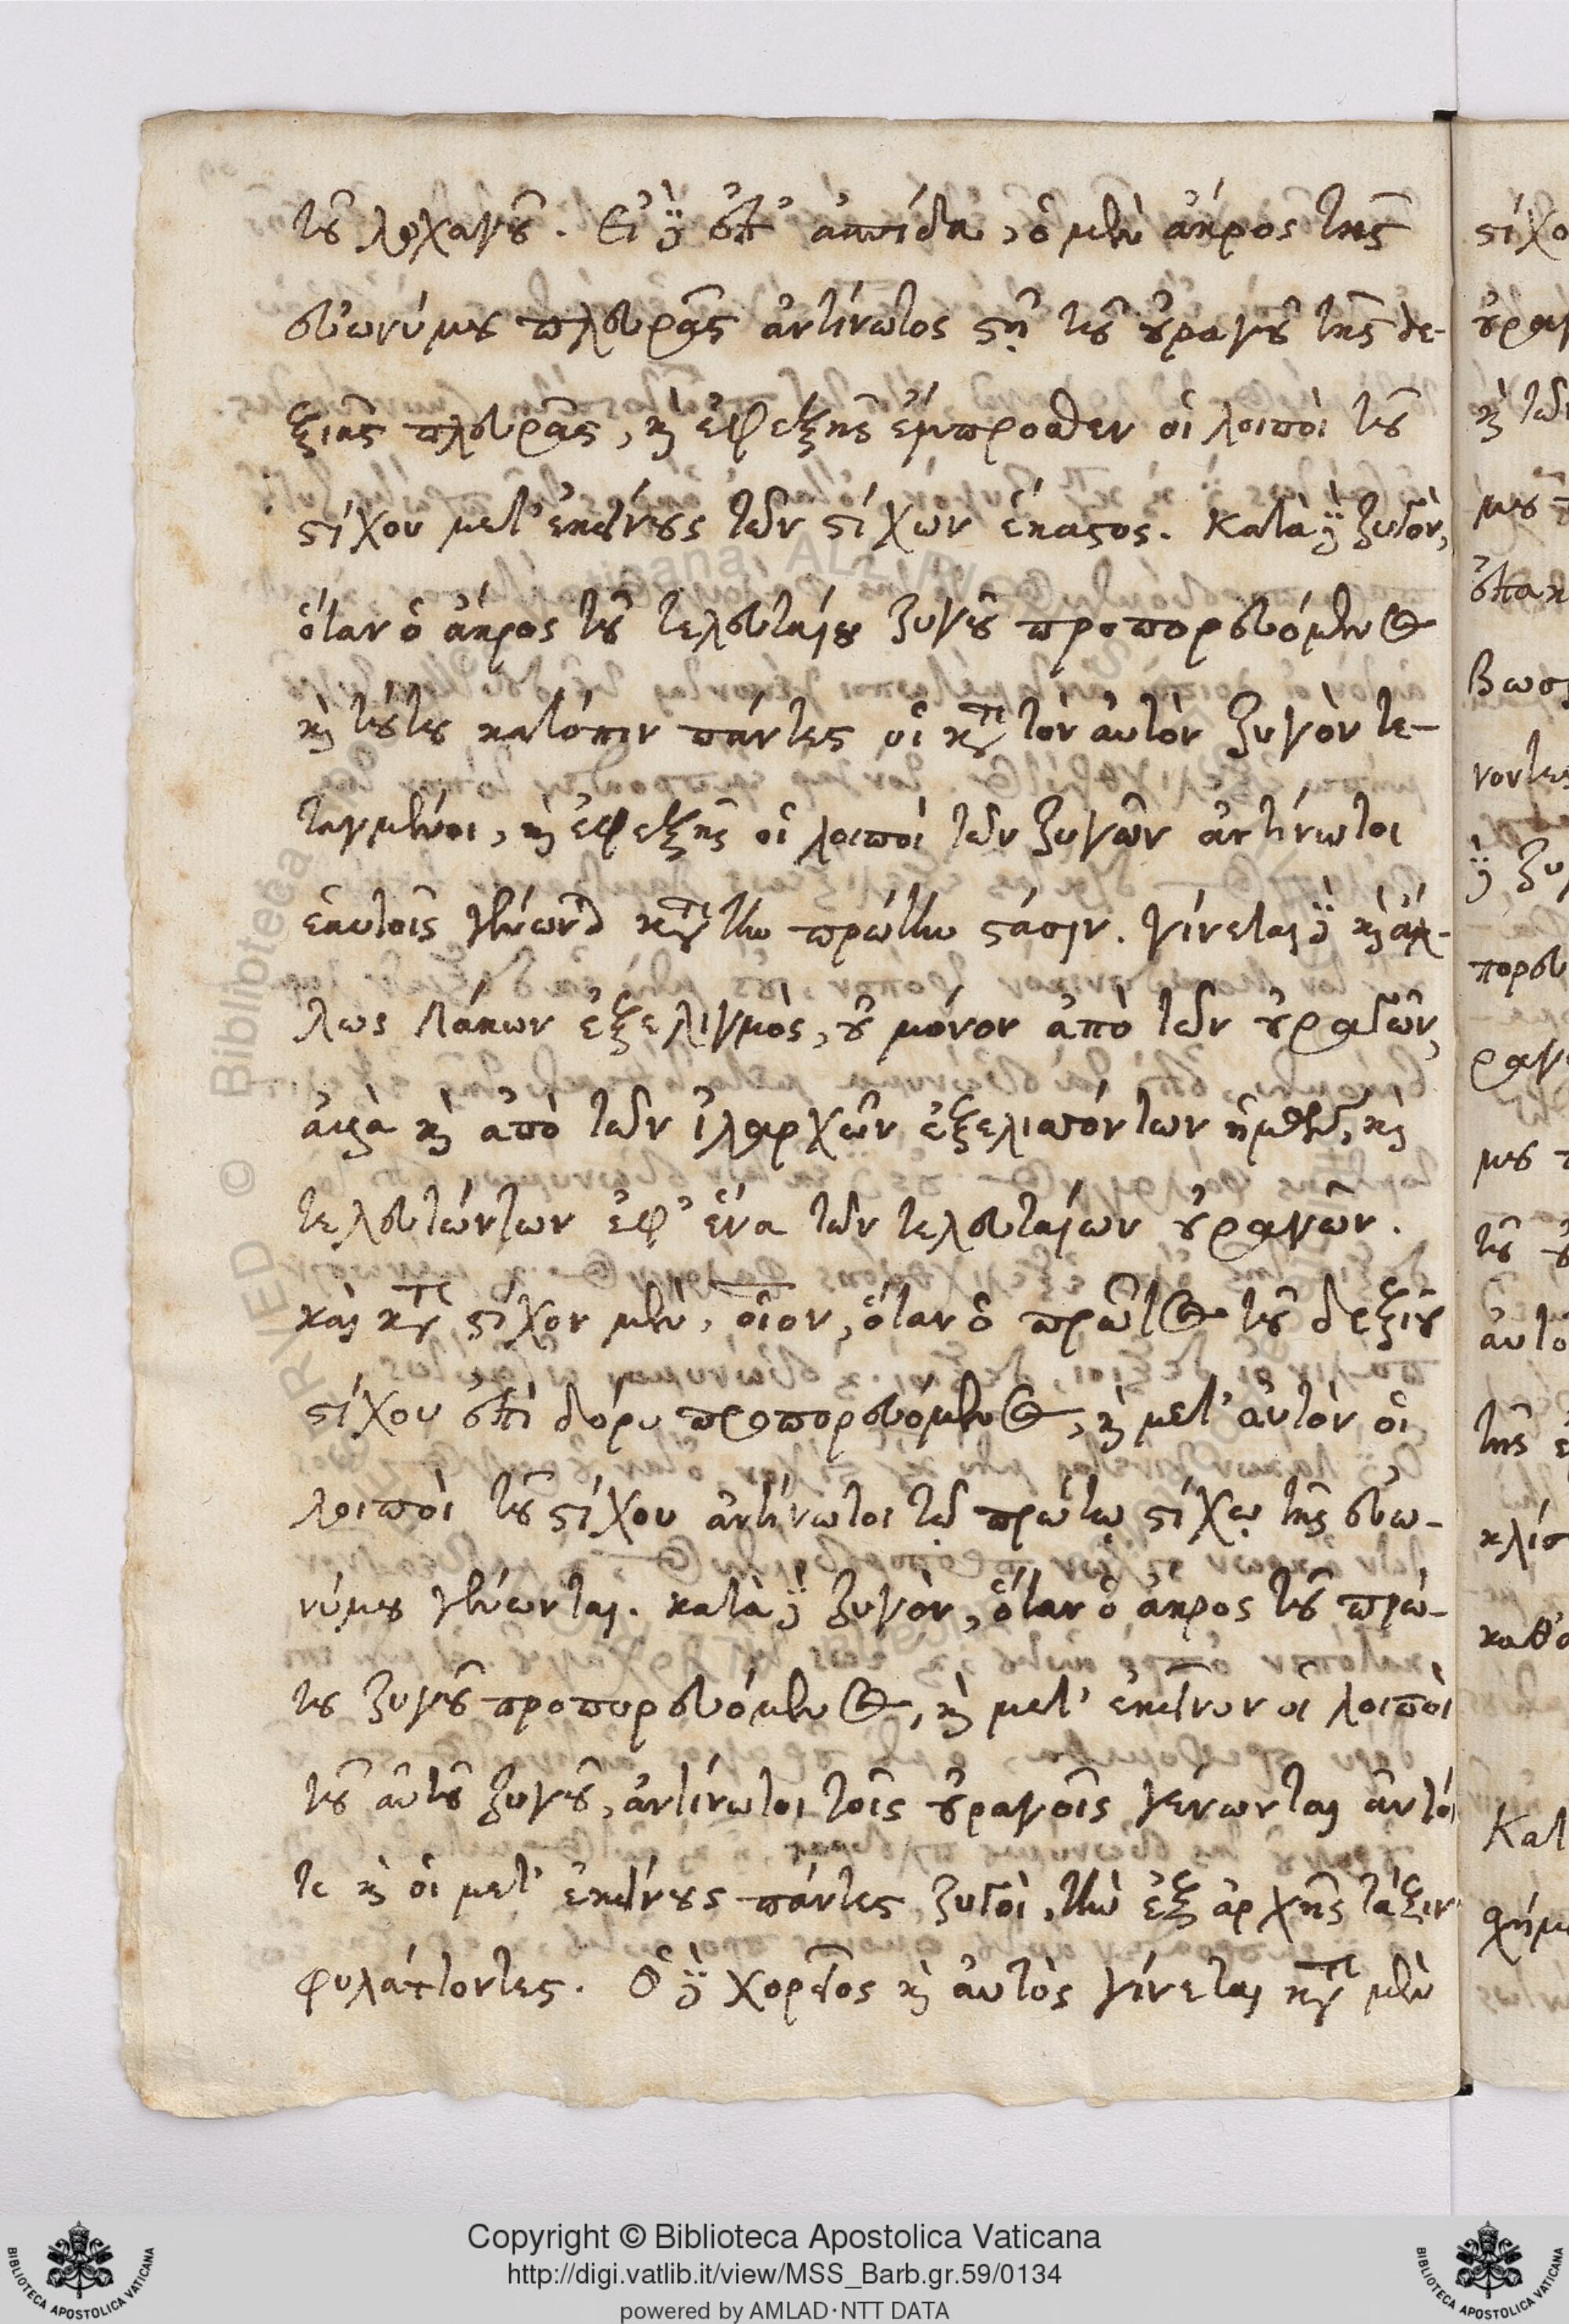 τοῦ λοχαγοῦ. Εἰ δὲ ἐπ' ἀσπίδα, ὁ μὲν ἄκρος τῆς
εὐωνύμου πλευρᾶς ἀντίνωτος στῇ τοῦ οὐραγοῦ τῆς δε-
ξιᾶς πλευρᾶς, καὶ ἐφεξῆς ἔμπροσθεν οἱ λοιποὶ τοῦ
στίχου μετ' ἐκείνους τῶν στίχων ἕκαστος. Κατὰ δὲ ζυγὸν,
ὅταν ὁ ἄκρος τοῦ τελευταίου ζυγοῦ προπορευόμενος
καὶ τούτου κατόπιν πάντες οἱ κατὰ τὸν αὐτὸν ζυγὸν τε-
ταγμένοι, καὶ ἐφεξῆς οἱ λοιποὶ τῶν ζυγῶν ἀντίνωτοι
ἑαυτοῖς γένωνται κατὰ τὴν πρώτην στάσιν. γίνεται δὲ καὶ ἄλ-
λως Λάκων ἐξελιγμὸς, οὐ μόνον ἀπὸ τῶν οὐραγῶν,
ἀλλὰ καὶ ἀπὸ τῶν ἰλαρχῶν ἐξελισσόντων ἡμῶν, καὶ
τελευτώντων ἐφ' ἕνα τῶν τελευταίων οὐραγῶν.
καὶ κατὰ στίχον μὲν, οἷον, ὅταν ὁ πρῶτος τοῦ δεξιοῦ
στίχου ἐπὶ δόρυ προπορευόμενος, καὶ μετ' αὐτὸν οἱ
λοιποὶ τοῦ στίχου ἀντίνωτοι τῷ πρώτῳ στίχῳ τῆς εὐω-
νύμου γένωνται. κατὰ δὲ ζυγὸν, ὅταν ὁ ἄκρος τοῦ πρώ-
του ζυγοῦ προπορευόμενος, καὶ μετ' ἐκεῖνον οἱ λοιποὶ
τοῦ αὐτοῦ ζυγοῦ, ἀντίνωτοι τοῖς οὐραγοῖς γένωνται αὐτοί
τε καὶ οἱ μετ' ἐκείνους πάντες ζυγοὶ, τὴν ἐξ ἀρχῆς τάξιν
φυλάττοντες. Ὁ δὲ χορεῖος καὶ αὐτὸς γίνεται κατὰ μὲν
Copyright © Biblioteca Apostolica Vaticana
http://digi.vatlib.it/view/MSS_Barb.gr.59/0134
powered by AMLAD·NTT DATA
BIBLIOTECA APOSTOLICA VATICANA
BIBLIOTECA APOSTOLICA VATICANA